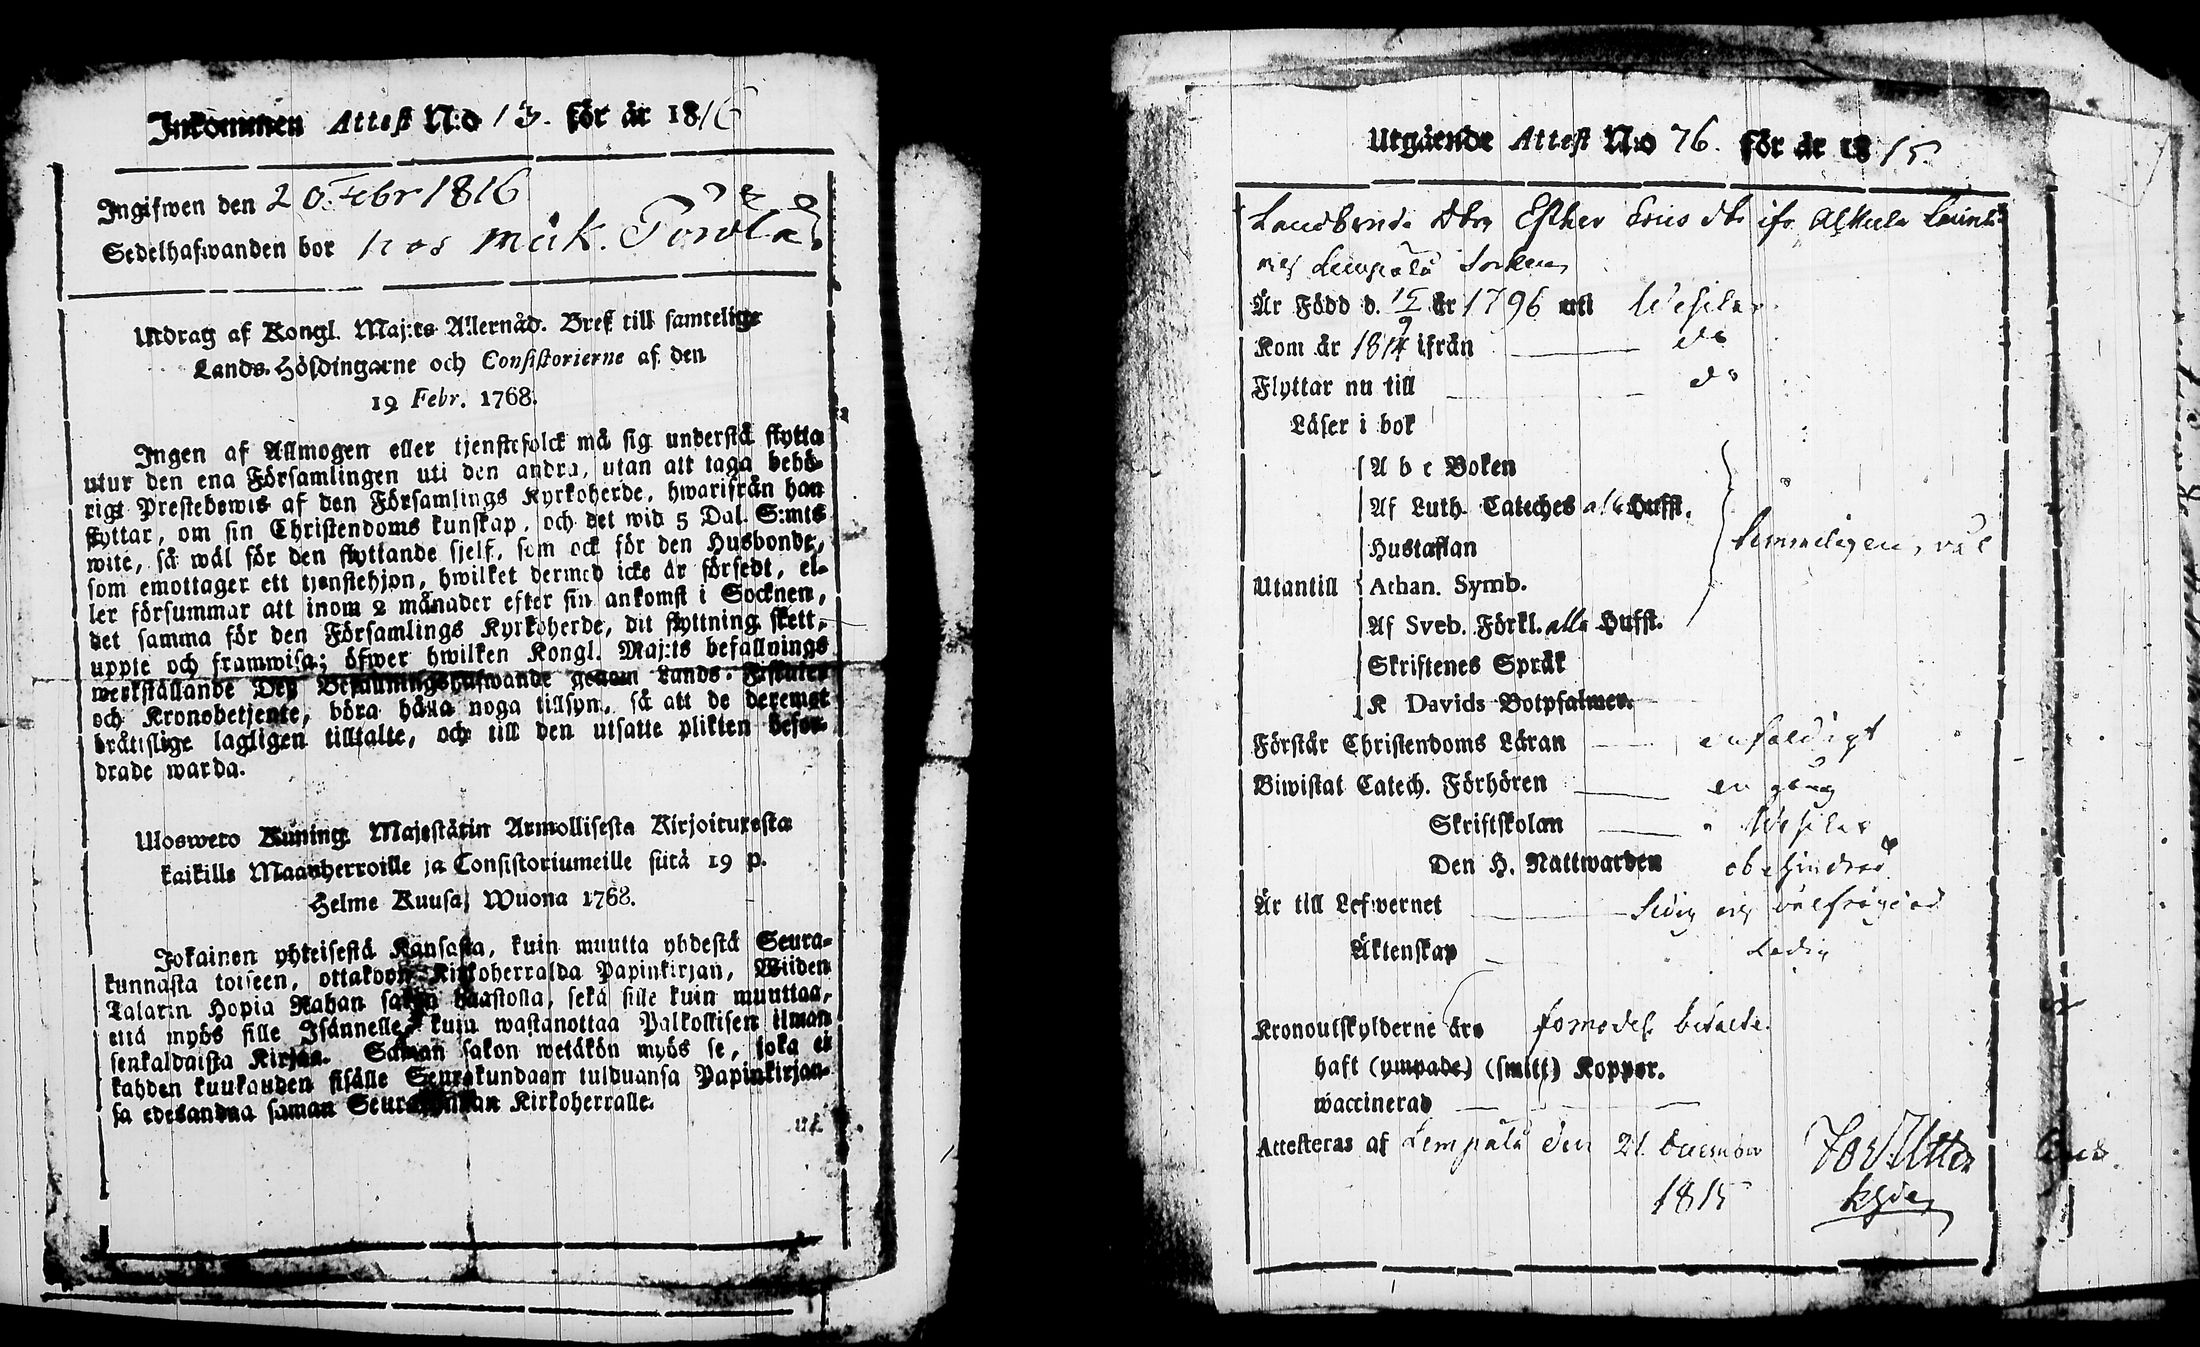 Inkommen Attest N:o 13. för år 1816
Ingifwen den 20 Febr 1816
Sedelhafwanden bor hos
Utdrag af Kongl. Maj:ts Allernåd. Bref till samtelige
Lands-Höfdingarne och Consistorierne af den
19 Febr. 1768.
Ingen af Allmogen eller tjenstefolck må sig understå flytta
utur den ena Församlingen uti den andra, utan att taga behö-
rigt Prestebewis af den Församlings Kyrkoherde, hwarifrån han
flyttar, om sin Christendoms kunskap, och det wid 5 Dal. S:mts
wite, så wäl för den flyttande sjelf, som ock för den Husbonde,
som emottager ett tjenstehjon, hwilket dermed icke är försedt, el-
ler försummar att inom 2 månader efter sin ankomst i Socknen,
det samma för den Församlings Kyrkoherde, dit flyttning skett,
uppte och framwisa; öfwer hwilken Kongl. Maj:ts befallnings
werkställande Dess Befallningshafwande genom Lands-Fiskaler
och Kronobetjente, böra hålla noga tillsyn, så att de deremot
bråtislige lagligen tilltalte, och till den utsatte plikten befor-
drade warda.
Ulosweto Kuning. Majestätin Armollisesta Kirjoituxesta
kaikille Maanherroille ja Consistoriumeille siitä 19 p.
Helme Kuusa, Wuona 1768.
Jokainen yhteisestä Kansasta, kuin muutta yhdestä Seura-
kunnasta toiseen, ottakoon Kirkoherralda Papinkirjan, Wiiden
Talarin Hopia Rahan sakon haastolla, sekä sille kuin muuttaa,
että myös sille Isännelle, kuin wastanottaa Palkollisen ilman
senkaldaista Kirjaa. Saman sakon wetäkön myös se, joka ei
kahden kuukauden sisälle Seurakundaan tulduansa Papinkirjan-
sa edesandna saman Seurakunnan Kirkoherralle.
Utgående Attest N:o 76. för år 1815
Landbonde Dtrn Esther Ericsdtr ifr
Lempälä Socken
Är Född d. 15/9 år 1796 uti Wesilax
Kom år 1814 ifrån do
Flyttar nu till do
Läser i bok
A b c Boken
Af Luth. Cateches alla Hufst.
Hustaflan
Utantill Athan. Symb.
Af Sveb. Förkl. alla Hufst.
Skriftenes Språk
K Davids Botpsalmer.
Förstår Christendoms Läran enfaldigt
Biwistat Catech. Förhören en gång
Skriftskolan Wesilax
Den H. Nattwarden obehindrad
Är till Lefwernet välfrägdad
Äktenskap Ledig
Kronoutskylderne äro betalte.
haft (ympade) (smitt) Koppor.
waccinerad
Attesteras af Lempälä den 21 December
1815